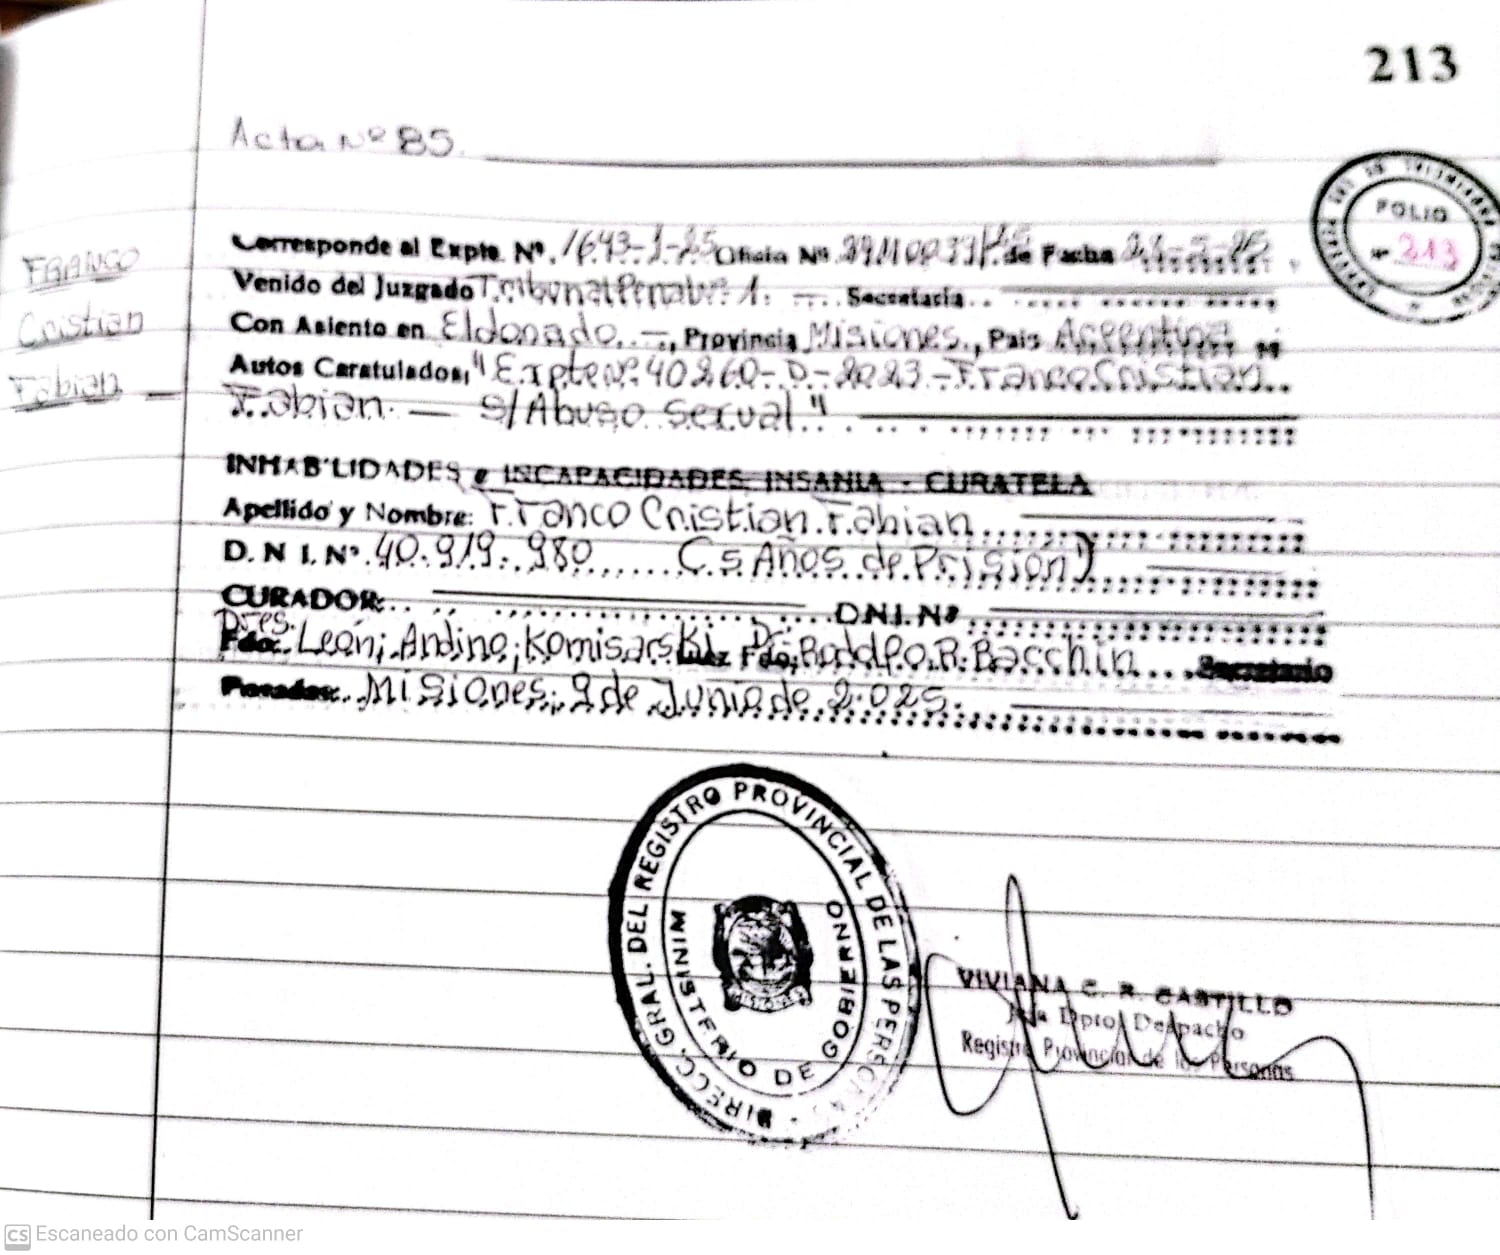 213
Acta Nº 85.
FOLIO
Nº 213
FRANCO
Cristian
Fabian
Corresponde al Expte. Nº. 1643-1-25 Oficio Nº de Fecha
Venido del Juzgado Tribunal Penal Nº 1. Secretaria
Con Asiento en Eldorado, Provincia Misiones, Pais Argentina
Autos Caratulados, "Expte Nº 40260-D-2023-Franco Cristian
Fabian. — S/Abuso Sexual"
INHABILIDADES e INCAPACIDADES INSANIA - CURATELA
Apellido y Nombre: Franco Cristian Fabian
D. N I. Nº. 40.919.980 (5 Años de Prisión)
CURADOR: D.N.I. Nº
Pres.
Fdo: León; Andino; Komisarski Juez Fdo; Dr. Rodolfo R. Bacchin Secretario
Posadas: Misiones; 9 de Junio de 2.025.
DIRECC. GRAL. DEL REGISTRO PROVINCIAL DE LAS PERSONAS
MINISTERIO DE GOBIERNO
VIVIANA C. R. CASTILLO
Jefa Dpto. Despacho
Registro Provincial de las Personas
CS Escaneado con CamScanner